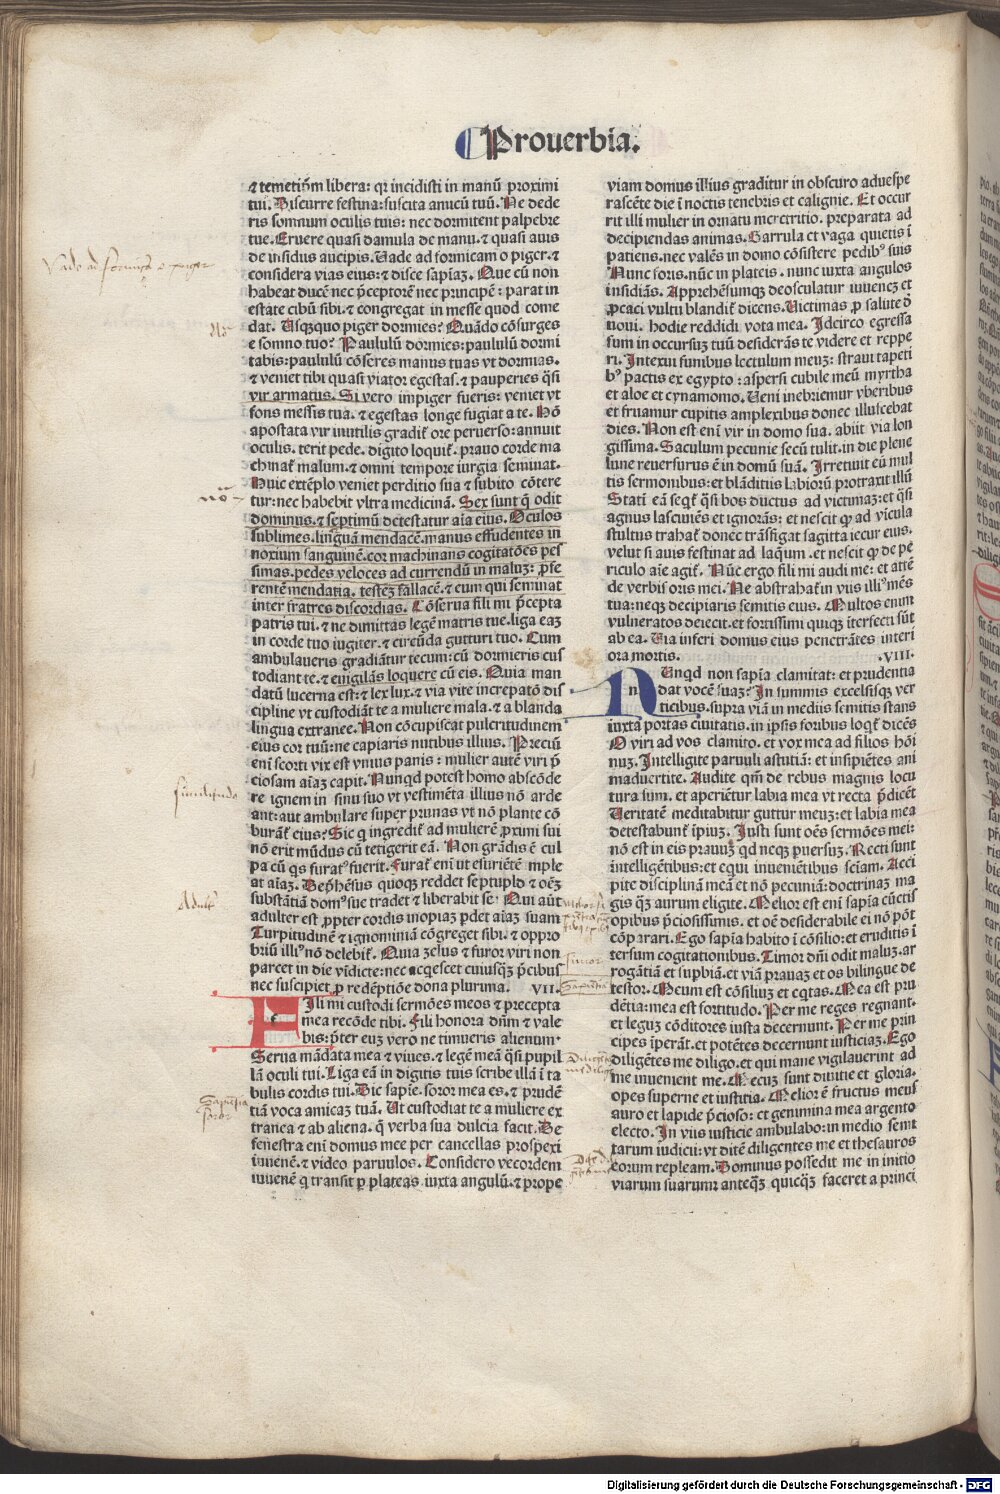 Prouerbia.
⁊ temetip̄m libera: qr incidisti in manū proximi
tui. Discurre festina: suscita amicū tuū. Ne dede
ris somnum oculis tuis: nec dormitent palpebre
tue. Eruere quasi damula de manu. ⁊ quasi auis
de insidus aucipis. Uade ad formicam o piger. ⁊
considera vias eius: ⁊ disce sapiaꝫ. Que cū non
habeat ducē nec p̄ceptorē nec principē: parat in
estate cibū sibi. ⁊ congregat in messe quod come
dat. Usqꝫquo piger dormies? Quādo cōsurges
e somno tuo? Paululū dormies: paululū dormi
tabis: paululū cōseres manus tuas vt dormas.
⁊ veniet tibi quasi viator egestas. ⁊ pauperies q̄si
vir armatus. Si vero impiger fueris: veniet vt
fons messis tua. ⁊ egestas longe fugiat a te. Nō
apostata vir inutilis gradit̄ ore peruerso: annuit
oculis. terit pede. digito loquit̄. prauo corde ma
chinat̄ malum. ⁊ omni tempore iurgia seminat.
Huic extēplo veniet perditio sua ⁊ subito cōtere
tur: nec habebit vltra medicinā. Sex sunt q̄ odit
dominus. ⁊ septimū detestatur aīa eius. Oculos
sublimes. linguā mendacē. manus effudentes in
noxium sanguinē. cor machinans cogitatōes pes
simas. pedes veloces ad currendū in maluꝫ: ꝓfe
rentē mendatia. testeꝫ fallacē. ⁊ eum qui seminat
inter fratres discordias. Cōserua fili mi p̄cepta
patris tui. ⁊ ne dimittas legē matris tue. liga eaꝫ
in corde tuo iugiter. ⁊ circūda gutturi tuo. Cum
ambulaueris gradiātur tecum: cū dormieris cus
todiant te. ⁊ euigilās loquere cū eis. Quia man
datū lucerna est: ⁊ lex lux. ⁊ via vite increpatō dis
cipline vt custodiāt te a muliere mala. ⁊ a blanda
lingua extranee. Non cōcupiscat pulcritudinem
eius cor tuū: ne capiaris nutibus illius. Preciū
enī scorti vix est vnius panis: mulier autē viri p̄
ciosam aīaꝫ capit. Nunqd potest homo abscōde
re ignem in sinu suo vt vestimēta illius nō arde
ant: aut ambulare super prunas vt nō plante cō
burāt̄ eius? Sic q ingredit̄ ad mulierē ꝓximi sui
nō erit mūdus cū tetigerit eā. Non grādis ē cul
pa cū qs furatꝰ fuerit. Furat̄ enī ut esuriētē mple
at aīaꝫ. Dep̄hēsus quoqꝫ reddet septuplū ⁊ oēꝫ
substātiā domꝰ sue tradet ⁊ liberabit se. Qui aūt
adulter est ꝓpter cordis inopiaꝫ pdet aīaꝫ suam
Turpitudinē ⁊ ignominiā cōgreget sibi. ⁊ oppro
briū illiꝰ nō delebit̄. Quia zelus ⁊ furor viri non
parcet in die vīdicte: nec acqescet cuiusqꝫ p̄cibus
nec suscipiet ꝓ redēptiōe dona pluruma. VII.
Fili mi custodi sermōes meos ⁊ precepta
mea recōde tibi. Fili honora dn̄m ⁊ vale
bis: p̄ter euꝫ vero ne timueris alienum.
Serua mādata mea ⁊ viues. ⁊ legē meā q̄si pupil
lā oculi tui. Liga eā in digitis tuis scribe illā ī ta
bulis cordis tui. Dic sapīe. soror mea es. ⁊ prudē
tiā voca amicaꝫ tuā. Ut custodiat te a muliere ex
tranea ⁊ ab aliena. q̄ verba sua dulcia facit. De
fenestra enī domus mee per cancellas prospexi
iuuenē. ⁊ video paruulos. Considero vecordem
iuuenē q transit ꝑ plateas iuxta angulū. ⁊ prope
viam domus illius graditur in obscuro aduespe
rascēte die ī noctis tenebris et calignie. Et occur
rit illi mulier in ornatu meretritio. preparata ad
decipiendas animas. Garrula et vaga quietis ī
patiens. nec valēs in domo cōsistere pedibꝰ suis
Nunc foris. nūc in plateis. nunc iuxta angulos
insidiās. Apprehēsumqꝫ deosculatur iuuencꝫ et
ꝓcaci vultu blandit̄ dicens. Uictimas ꝓ salute d̄
uoui. hodie reddidi vota mea. Idcirco egressa
sum in occursuꝫ tuū desiderās te videre et reppe
ri. Intexui funibus lectulum meuꝫ: straui tapeti
bꝰ pactis ex egypto: aspersi cubile meū myrrha
et aloe et cynamomo. Ueni inebriemur vberibus
et fruamur cupitis amplexibus donec illuscebat
dies. Non est enī vir in domo sua. abiit via lon
gissima. Saculum pecunie secū tulit. in die plene
lune reuersurus ē in domū suā. Irretiuit eū mul
tis sermonibus: et blāditiis labiorū protraxit illū
Stati eā seqt̄ q̄si bos ductus ad victimaꝫ: et q̄si
agnus lasciuiēs et ignorās: et nescit ꝙ ad vīcula
stultus trahat̄ donec trāsfigat sagitta iecur eius.
velut si auis festinat ad laqūm. et nescit ꝙ de pe
riculo aīe agit̄. Nūc ergo fili mi audi me: et attē
de verbis oris mei. Ne abstrahat̄ in viis illiꝰ mēs
tua: neqꝫ decipiaris semitis eius. Multos enim
vulneratos deiecit. et fortissimi quiqꝫ īterfecti sūt
ab ea. Uia inferi domus eius penetrātes interi
ora mortis. .VIII.
Nunqd non sapīa clamitat: et prudentia
dat vocē suaꝫ? In summis excelsisqꝫ ver
ticibus. supra viā in mediis semitis stans
iuxta portas ciuitatis. in ipsis foribus loqt̄ dicēs
O viri ad vos clamito. et vox mea ad filios hōi
nuꝫ. Intelligite paruuli astutiā: et insipiētes ani
maduertite. Audite qm̄ de rebus magnis locu
tura sum. et aperiētur labia mea vt recta p̄dicēt
Ueritatē meditabitur guttur meuꝫ: et labia mea
detestabunt̄ īpiuꝫ. Justi sunt oēs sermōes mei:
nō est in eis prauuꝫ qd neqꝫ ꝑuersuꝫ. Recti sunt
intelligētibus: et equi inuenietibus sciam. Acci
pite disciplinā meā et nō pecuniā: doctrinaꝫ ma
gis qꝫ aurum eligite. Melior est enī sapīa cūctis
opibus p̄ciosissimis. et oē desiderabile ei nō pōt
cōparari. Ego sapīa habito ī cōsilio: et eruditis ī
tersum cogitationibus. Timor dn̄i odit maluꝫ. ar
rogātiā et supbiā. et viā prauaꝫ et os bilingue de
testor. Meum est cōsiliuꝫ et eqtas. Mea est pru
dētia: mea est fortitudo. Per me reges regnant.
et leguꝫ cōditores iusta decernunt. Per me prin
cipes īperāt. et potētes decernunt iusticiaꝫ. Ego
diligētes me diligo. et qui mane vigilauerint ad
me inuenient me. Mecuꝫ sunt diuitie et gloria.
opes superne et iustitia. Melior ē fructus meus
auro et lapide p̄cioso: et genimina mea argento
electo. In viis iusticie ambulabo: in medio semi
tarum iudicii: vt ditē diligentes me et thesauros
eorum repleam. Dominus possedit me in initio
viarum suarum: anteqꝫ quicqꝫ faceret a princi
Vade ad formicā o piger
Sapientia
soror
timor
Sapientia
Digitalisierung gefördert durch die Deutsche Forschungsgemeinschaft - DFG